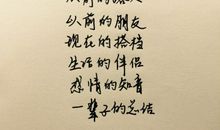 以前的朋友
现在的搭档
生活的伴侣
感情的知音
一辈子的总结